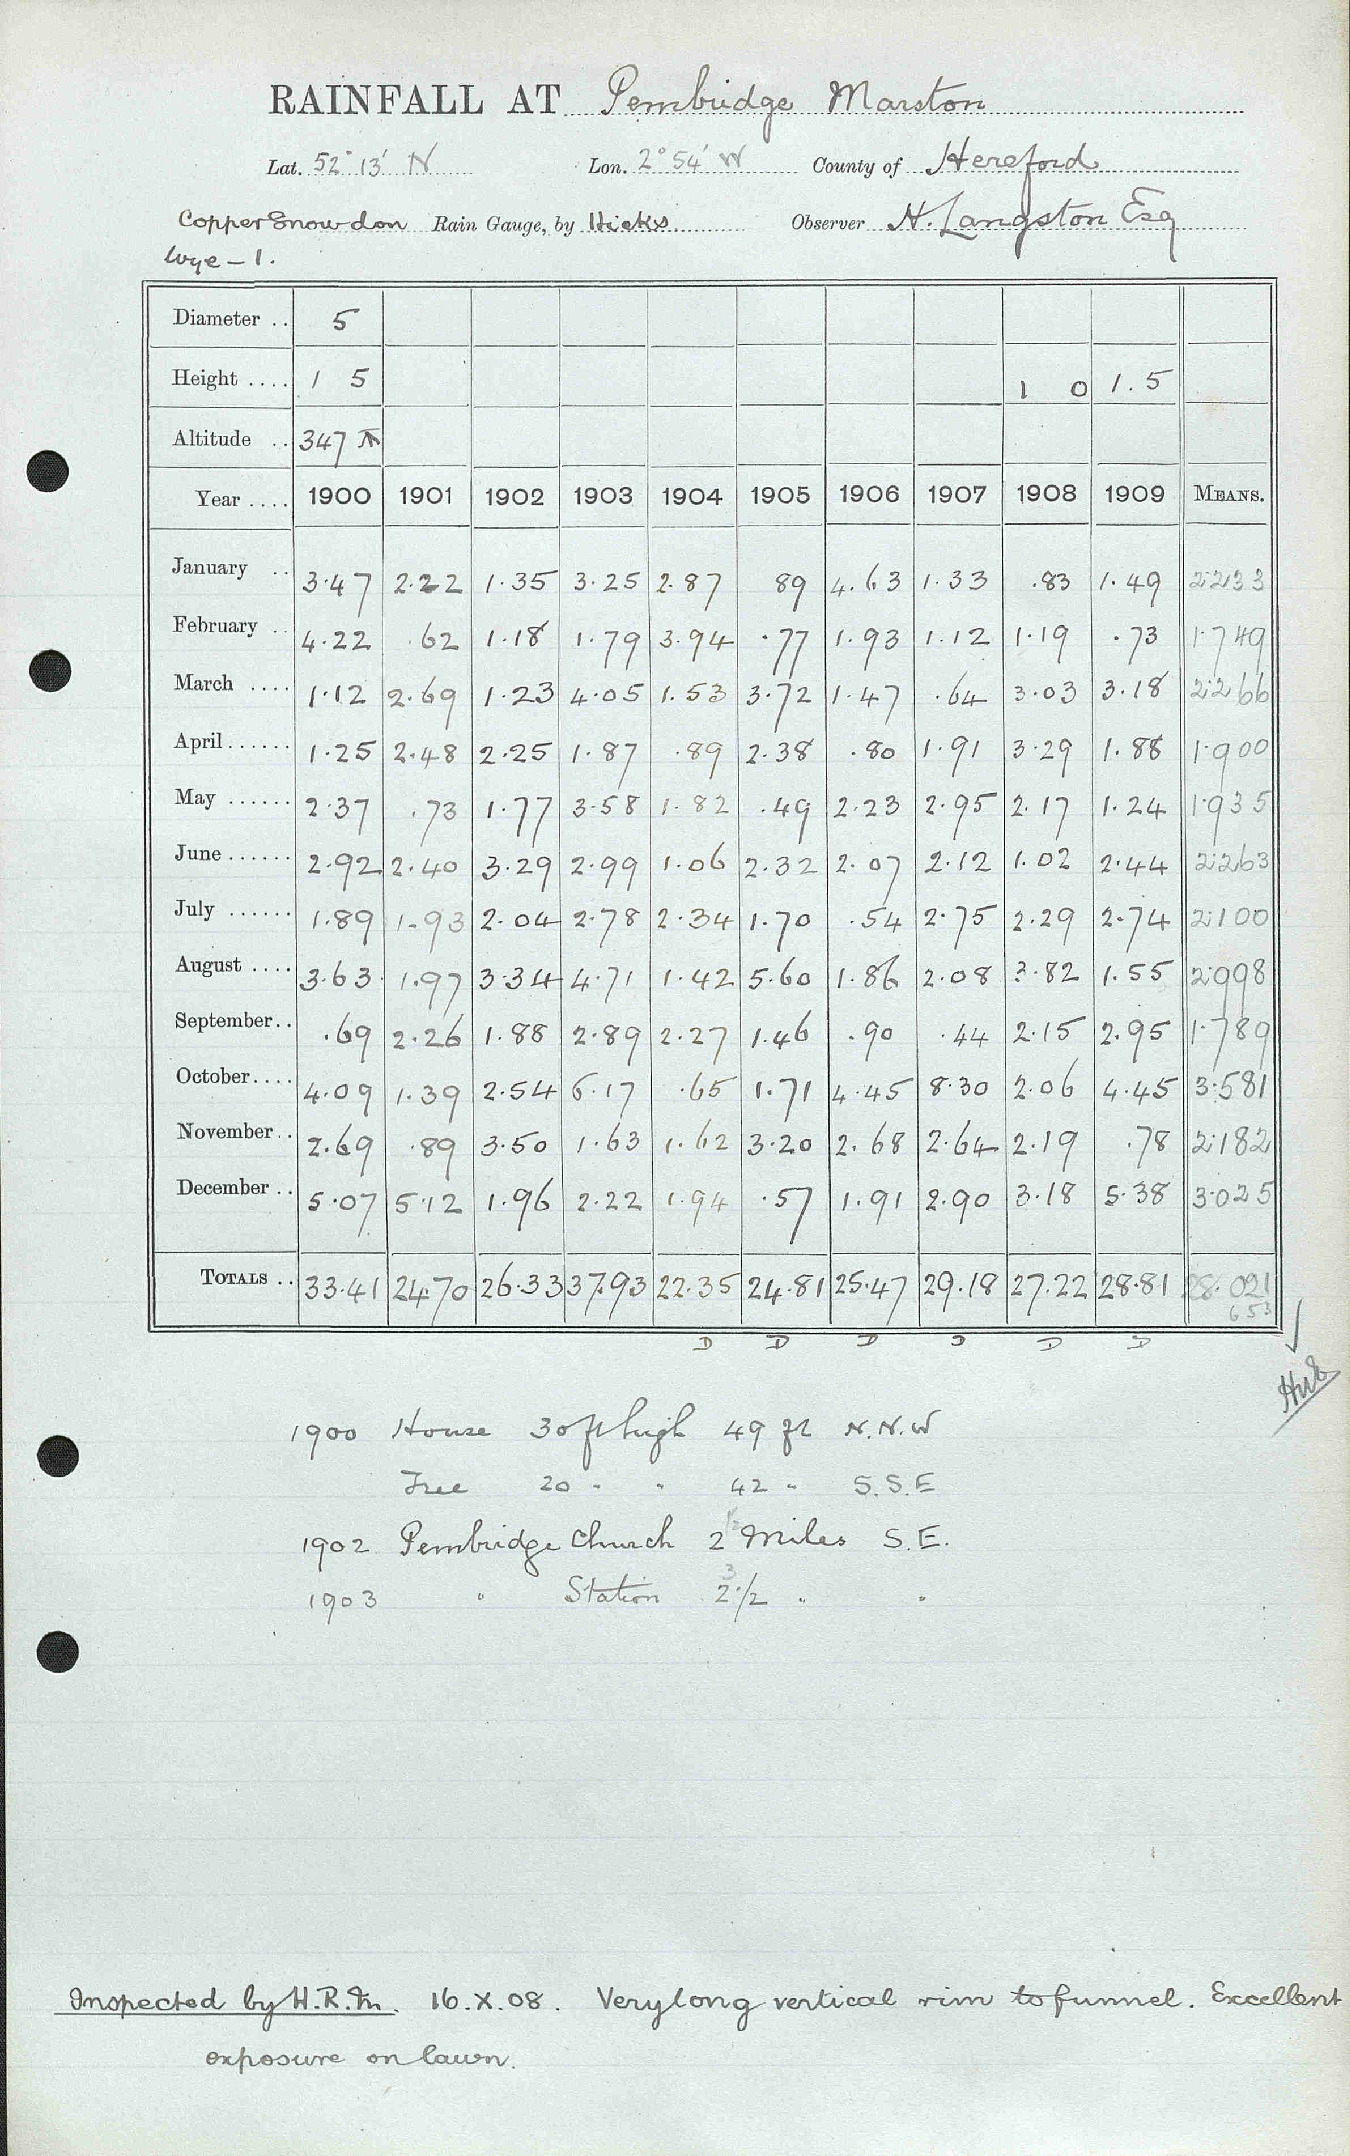 RAINFALL AT Pembridge Marston
Lat. 52° 13' N Lon. 2° 54' W County of Hereford
Copper Snowdon Rain Gauge, by Hicks Observer N. Langston Esq
Wye - 1.
Diameter .. 5
Height .... 1 5 1 0 1.5
Altitude .. 347
Year .... 1900 1901 1902 1903 1904 1905 1906 1907 1908 1909 MEANS.
January .. 3.47 2.22 1.35 3.25 2.87 89 4.63 1.33 .83 1.49 2.233
February .. 4.22 .62 1.18 1.79 3.94 .77 1.93 1.12 1.19 .73 1.749
March .... 1.12 2.69 1.23 4.05 1.53 3.72 1.47 .64 3.03 3.18 2.266
April ...... 1.25 2.48 2.25 1.87 .89 2.38 .80 1.91 3.29 1.88 1.900
May ...... 2.37 .73 1.77 3.58 1.82 .49 2.23 2.95 2.17 1.24 1.935
June ...... 2.92 2.40 3.29 2.99 1.06 2.32 2.07 2.12 1.02 2.44 2.263
July ...... 1.89 1.93 2.04 2.78 2.34 1.70 .54 2.75 2.29 2.74 2.100
August .... 3.63 1.97 3.34 4.71 1.42 5.60 1.86 2.08 3.82 1.55 2.998
September.. .69 2.26 1.88 2.89 2.27 1.46 .90 .44 2.15 2.95 1.789
October.... 4.09 1.39 2.54 6.17 .65 1.71 4.45 8.30 2.06 4.45 3.581
November.. 2.69 .89 3.50 1.63 1.62 3.20 2.68 2.64 2.19 .78 2.182
December .. 5.07 5.12 1.96 2.22 1.94 .57 1.91 2.90 3.18 5.38 3.025
TOTALS .. 33.41 24.70 26.33 37.93 22.35 24.81 25.47 29.18 27.22 28.81 28.021
D D D D D D
1900 House 30 ft high 49 ft N.N.W
Tree 20 " " 42 " S.S.E
1902 Pembridge Church 2 Miles S.E.
1903 " Station 2 1/2 " "
Inspected by H.R.M. 16.X.08. Very long vertical rim to funnel. Excellent
exposure on lawn.